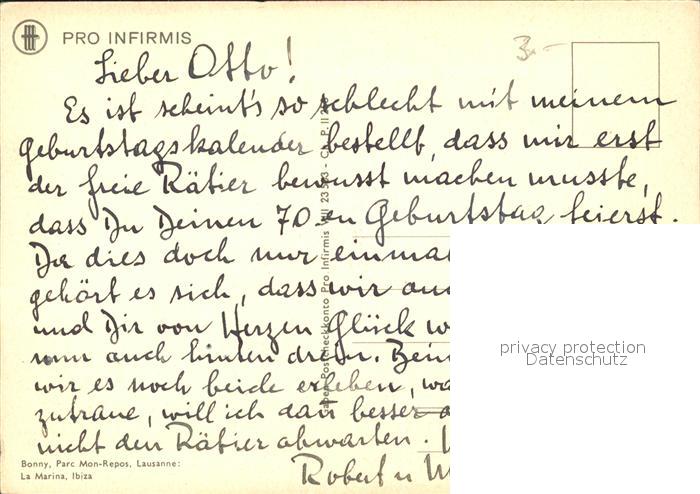 PRO INFIRMIS
3.-
Lieber Otto!
Es ist scheint's so schlecht mit meinem
Geburtstagskalender bestellt, dass mir erst
der freie Rätier bewusst machen musste,
dass Du Deinen 70-en Geburtstag feierst.
Da dies doch nur einma
gehört es sich, dass wir au
und Dir von Herzen Glück w
nun auch hinten drein. Beim
wir es noch beide erleben, wa
zutraue, will ich dann besser a
nicht den Rätier abwarten.
Robert u M
Postcheckkonto Pro Infirmis VII 23503
privacy protection
Datenschutz
Bonny, Parc Mon-Repos, Lausanne:
La Marina, Ibiza